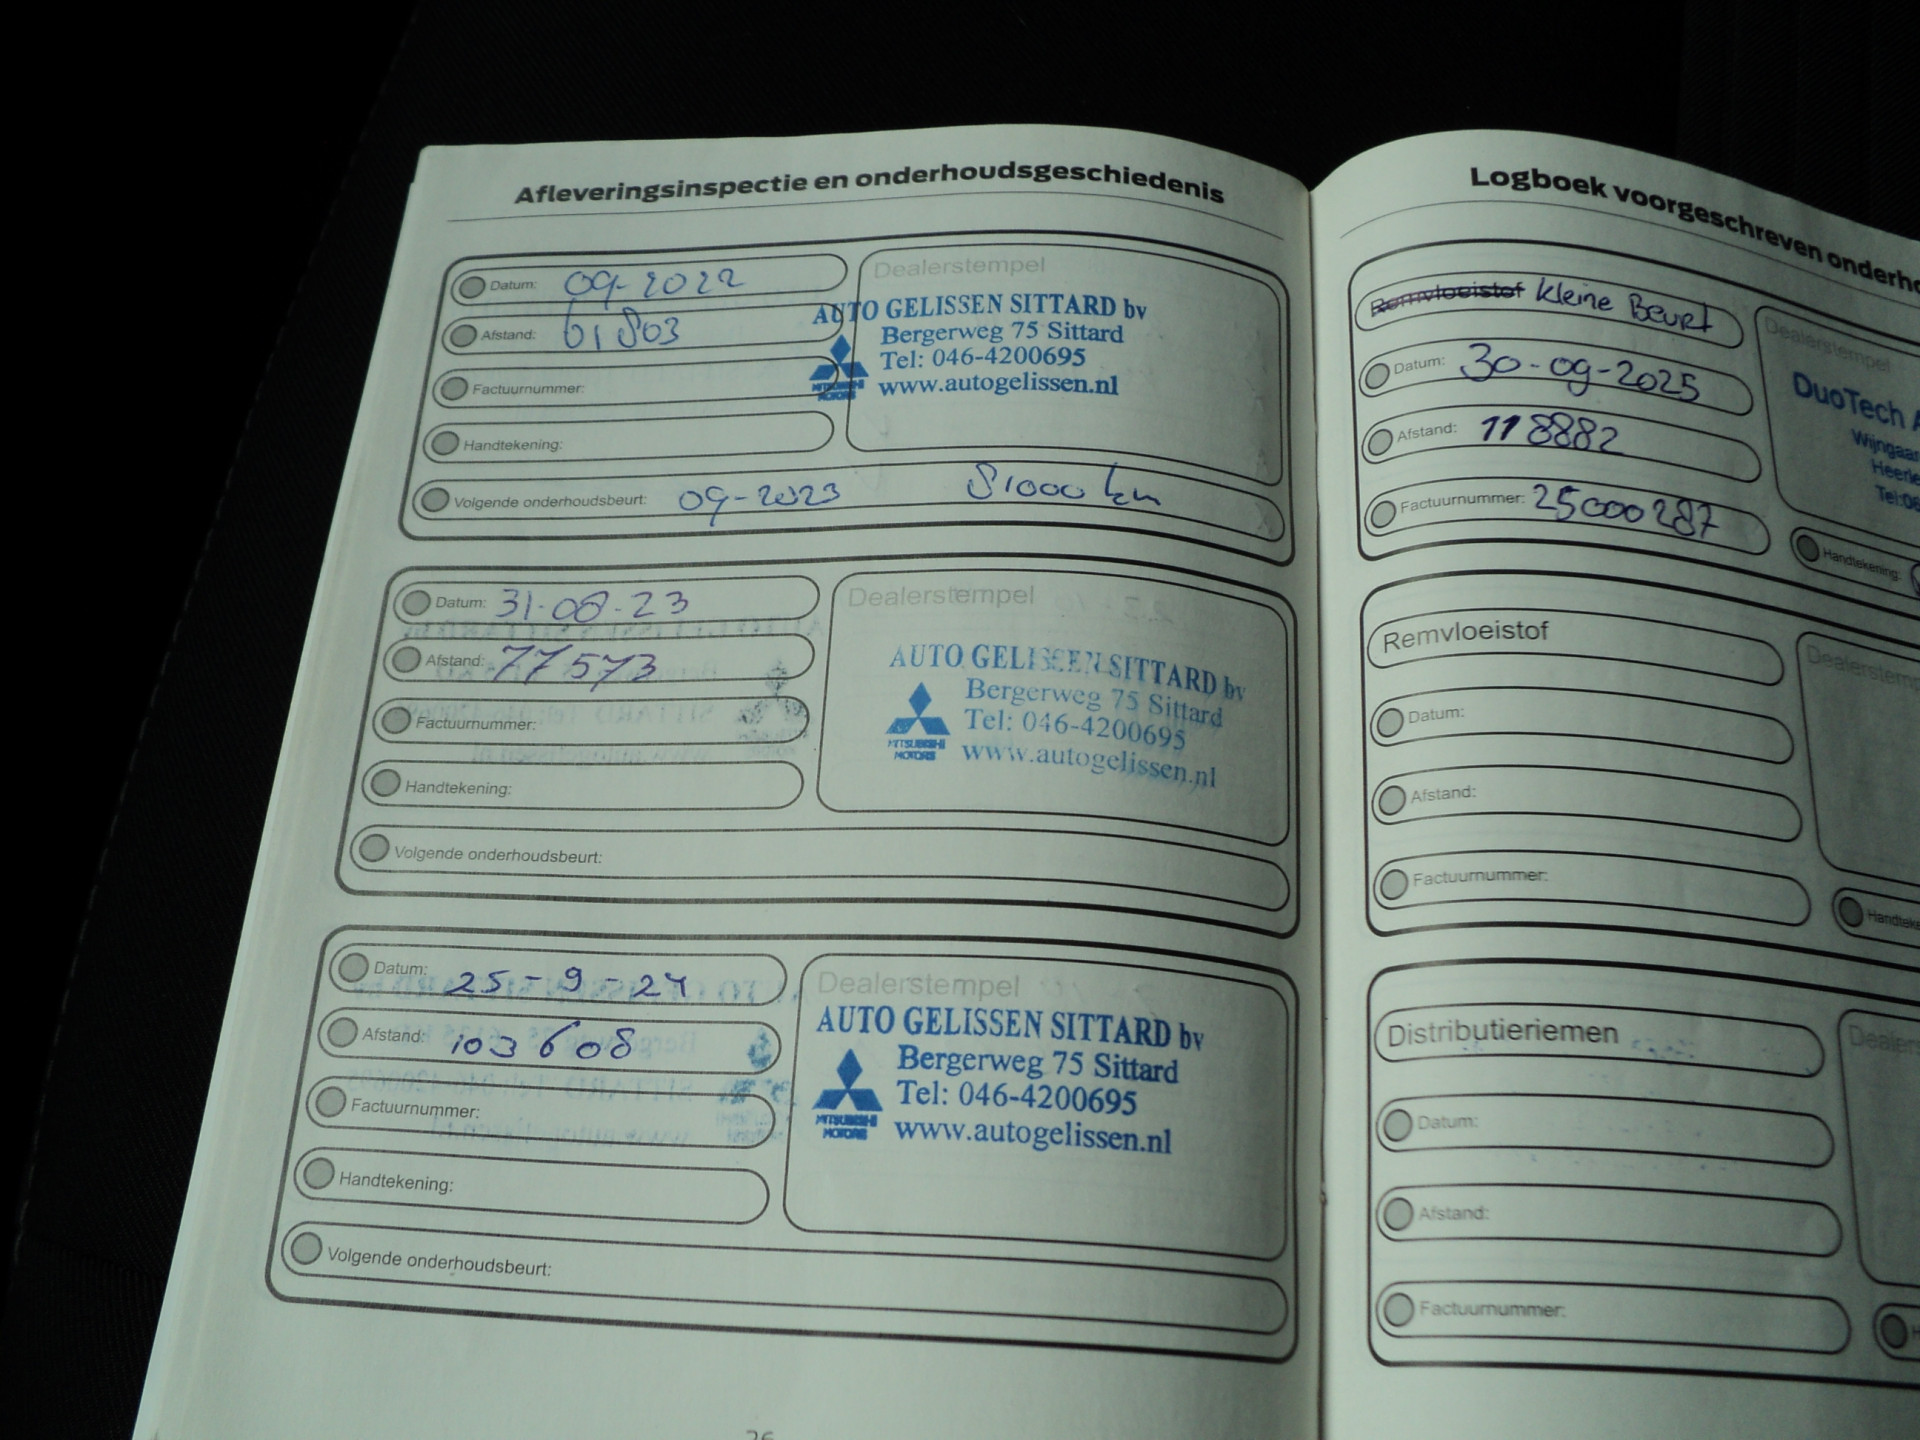 Afleveringsinspectie en onderhoudsgeschiedenis
Datum: 09-2022
Afstand: 61803
Factuurnummer:
Handtekening:
Volgende onderhoudsbeurt: 09-2023 81000 km
Dealerstempel
AUTO GELISSEN SITTARD bv
Bergerweg 75 Sittard
Tel: 046-4200695
www.autogelissen.nl
MITSUBISHI
MOTORS
Datum: 31-08-23
Afstand: 77573
Factuurnummer:
Handtekening:
Volgende onderhoudsbeurt:
Dealerstempel
AUTO GELISSEN SITTARD bv
Bergerweg 75 Sittard
Tel: 046-4200695
www.autogelissen.nl
MITSUBISHI
MOTORS
Datum: 25-9-24
Afstand: 103608
Factuurnummer:
Handtekening:
Volgende onderhoudsbeurt:
Dealerstempel
AUTO GELISSEN SITTARD bv
Bergerweg 75 Sittard
Tel: 046-4200695
www.autogelissen.nl
MITSUBISHI
MOTORS
Logboek voorgeschreven onderho
Remvloeistof Kleine Beurt
Datum: 30-09-2025
Afstand: 118882
Factuurnummer: 25000287
Dealerstempel
DuoTech A
Wijngaar
Heerle
Tel:06
Handtekening:
Remvloeistof
Datum:
Afstand:
Factuurnummer:
Dealerstemp
Handteke
Distributieriemen
Datum:
Afstand:
Factuurnummer:
Dealers
H